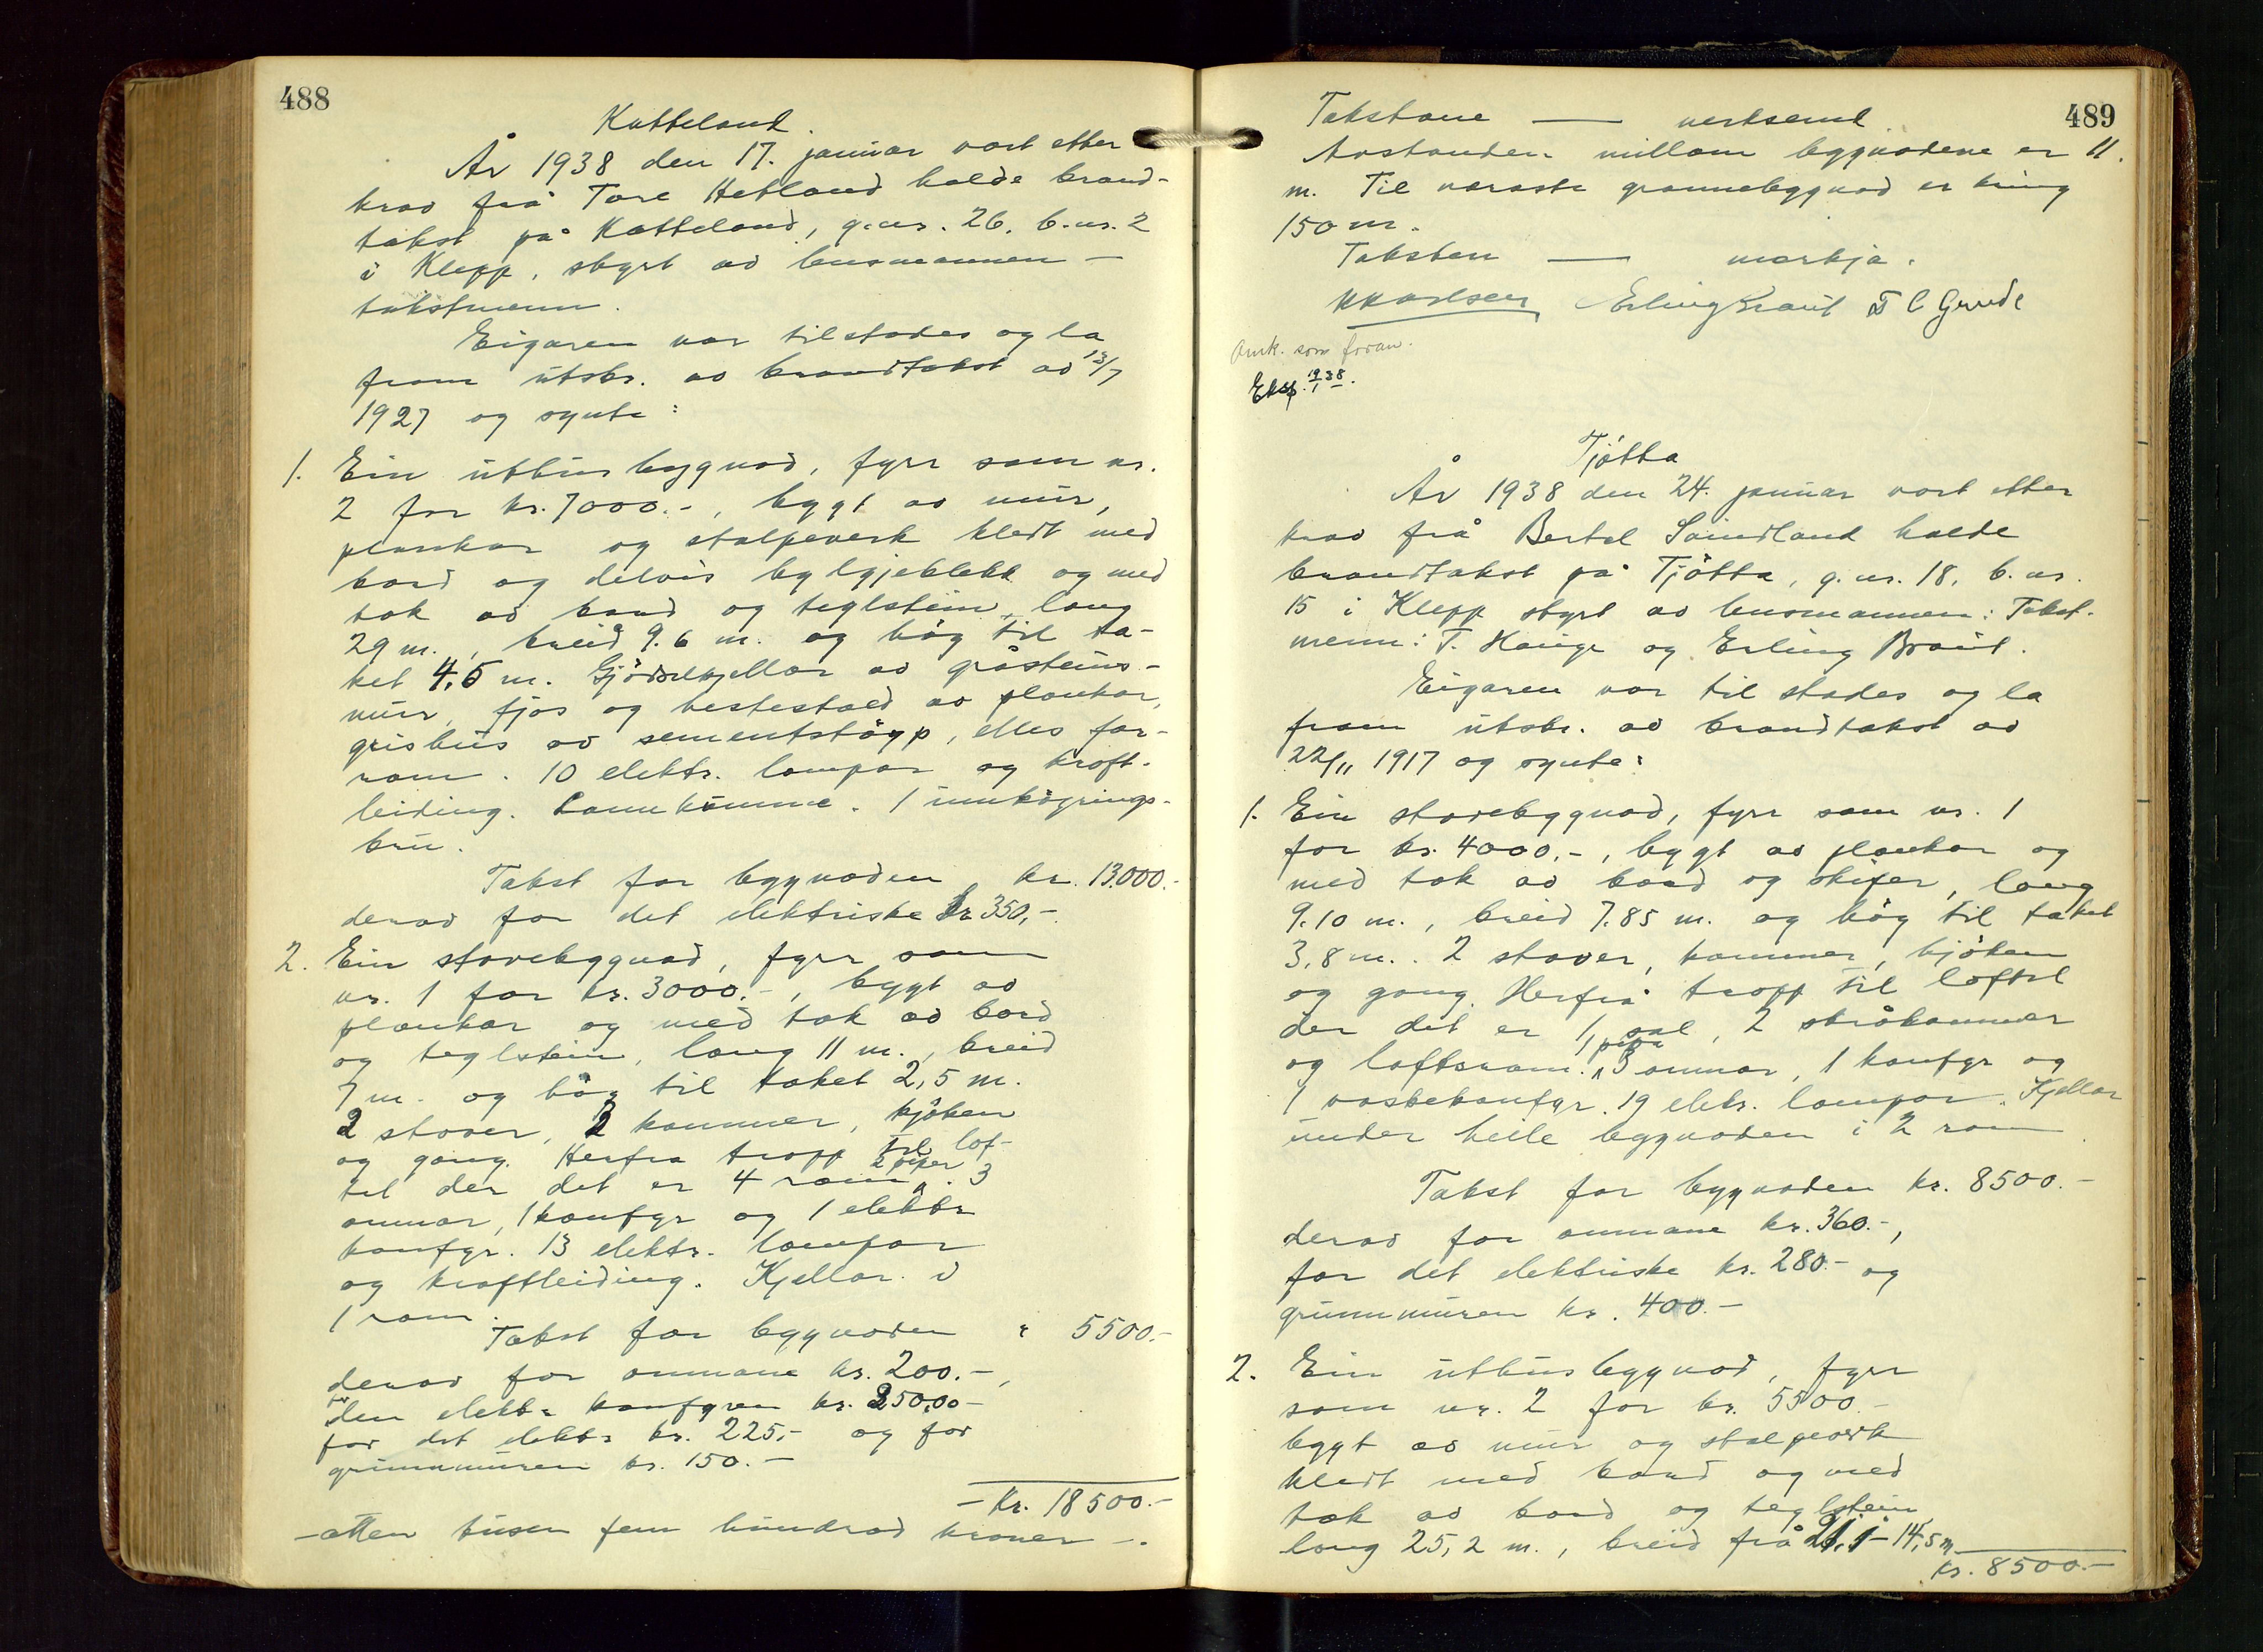 488
Katteland.
År 1938 den 17. januar vart etter
krav frå Tore Hetland halde brand-
takst på Katteland, g.nr. 26, b.nr. 2
i Klepp, styrt av lensmannen —
takstmenn.
Eigaren var tilstades og la
fram utskr. av brandtakst av 13/7
1927 og synte:
1. Ein uthusbygnad, fyrr som nr.
2 for kr. 7000.-, bygt av mur,
plankar og stalpeverk kledt med
bord og delvis bylgjeblekk og med
tak av bord og teglstein, lang
29 m., breid 9.6 m. og høg til ta-
ket 4,5 m. Gjødselkjellar av gråsteins-
mur, fjos og hestestald av plankar,
grishus av sementstøyp, elles for-
rom. 10 elektr. lampor og kraft-
leiding. Landkumme. 1 innkøyrings-
bru.
Takst for bygnaden kr. 13.000.-
derav for det elektriske kr 350,-.
2. Ein stovebygnad, fyrr som
nr. 1 for kr. 3000.-, bygt av
plankar og med tak av bord
og teglstein, lang 11 m., breid
7 m. og høg til taket 2,5 m.
2 stover, 2 kammer, kjøken
og gang. Herfra tropp til lof-
tet der det er 4 rom, 2 piper. 3
omnar, 1 komfyr og 1 elektr
komfyr. 13 elektr. lampor
og kraftleiding. Kjellar i
1 rom.
Takst for bygnaden " 5500.-
derav for omnane kr. 200.-,
for den elektr komfyren kr. 250,00-
for det elektr kr. 225,- og for
grunnmuren kr. 150.-
- kr. 18500.-
- atten tusen fem hundrad kroner -.
489
Takstane — verksemd
Avstanden millom bygnadene er 11.
m. Til næraste grannebygnad er kring
150 m.
Taksten — merkja.
Erling Braut T C Grude
Amk. som foran.
Eksp. 19/1 38.
Tjøtta
År 1938 den 24. januar vart etter
krav frå Bertel Sundland halde
brandtakst på Tjøtta, g.nr. 18, b.nr.
15 i Klepp styrt av lensmannen: Takst-
menn: T. Hauge og Erling Braut.
Eigaren var til stades og la
fram utskr. av brandtakst av
22/11 1917 og synte:
1. Ein stovebygnad, fyrr som nr. 1
for kr. 4000,-, bygt av plankar og
med tak av bord og skifer, lang
9.10 m., breid 7.85 m. og høg til taket
3,8 m.. 2 stover, kammer, kjøken
og gang. Herfrå tropp til loftet
der det er 1 sal, 2 skråkammer
og loftsrom. 1 pipe 3 omnar, 1 komfyr og
1 vaskekomfyr. 19 elektr. lampor. Kjellar
under heile bygnaden i 2 rom.
Takst for bygnaden kr. 8500.-
derav for omnane kr. 360.-,
for det elektriske kr. 280.- og
grunnmuren kr. 400.-
2. Ein uthusbygnad, fyrr
som nr. 2 for kr. 5500.-
bygt av mur og stalpeverk
kledt med bord og med
tak av bord og teglstein
lang 25,2 m., breid frå - 14,5 m
kr. 8500.-